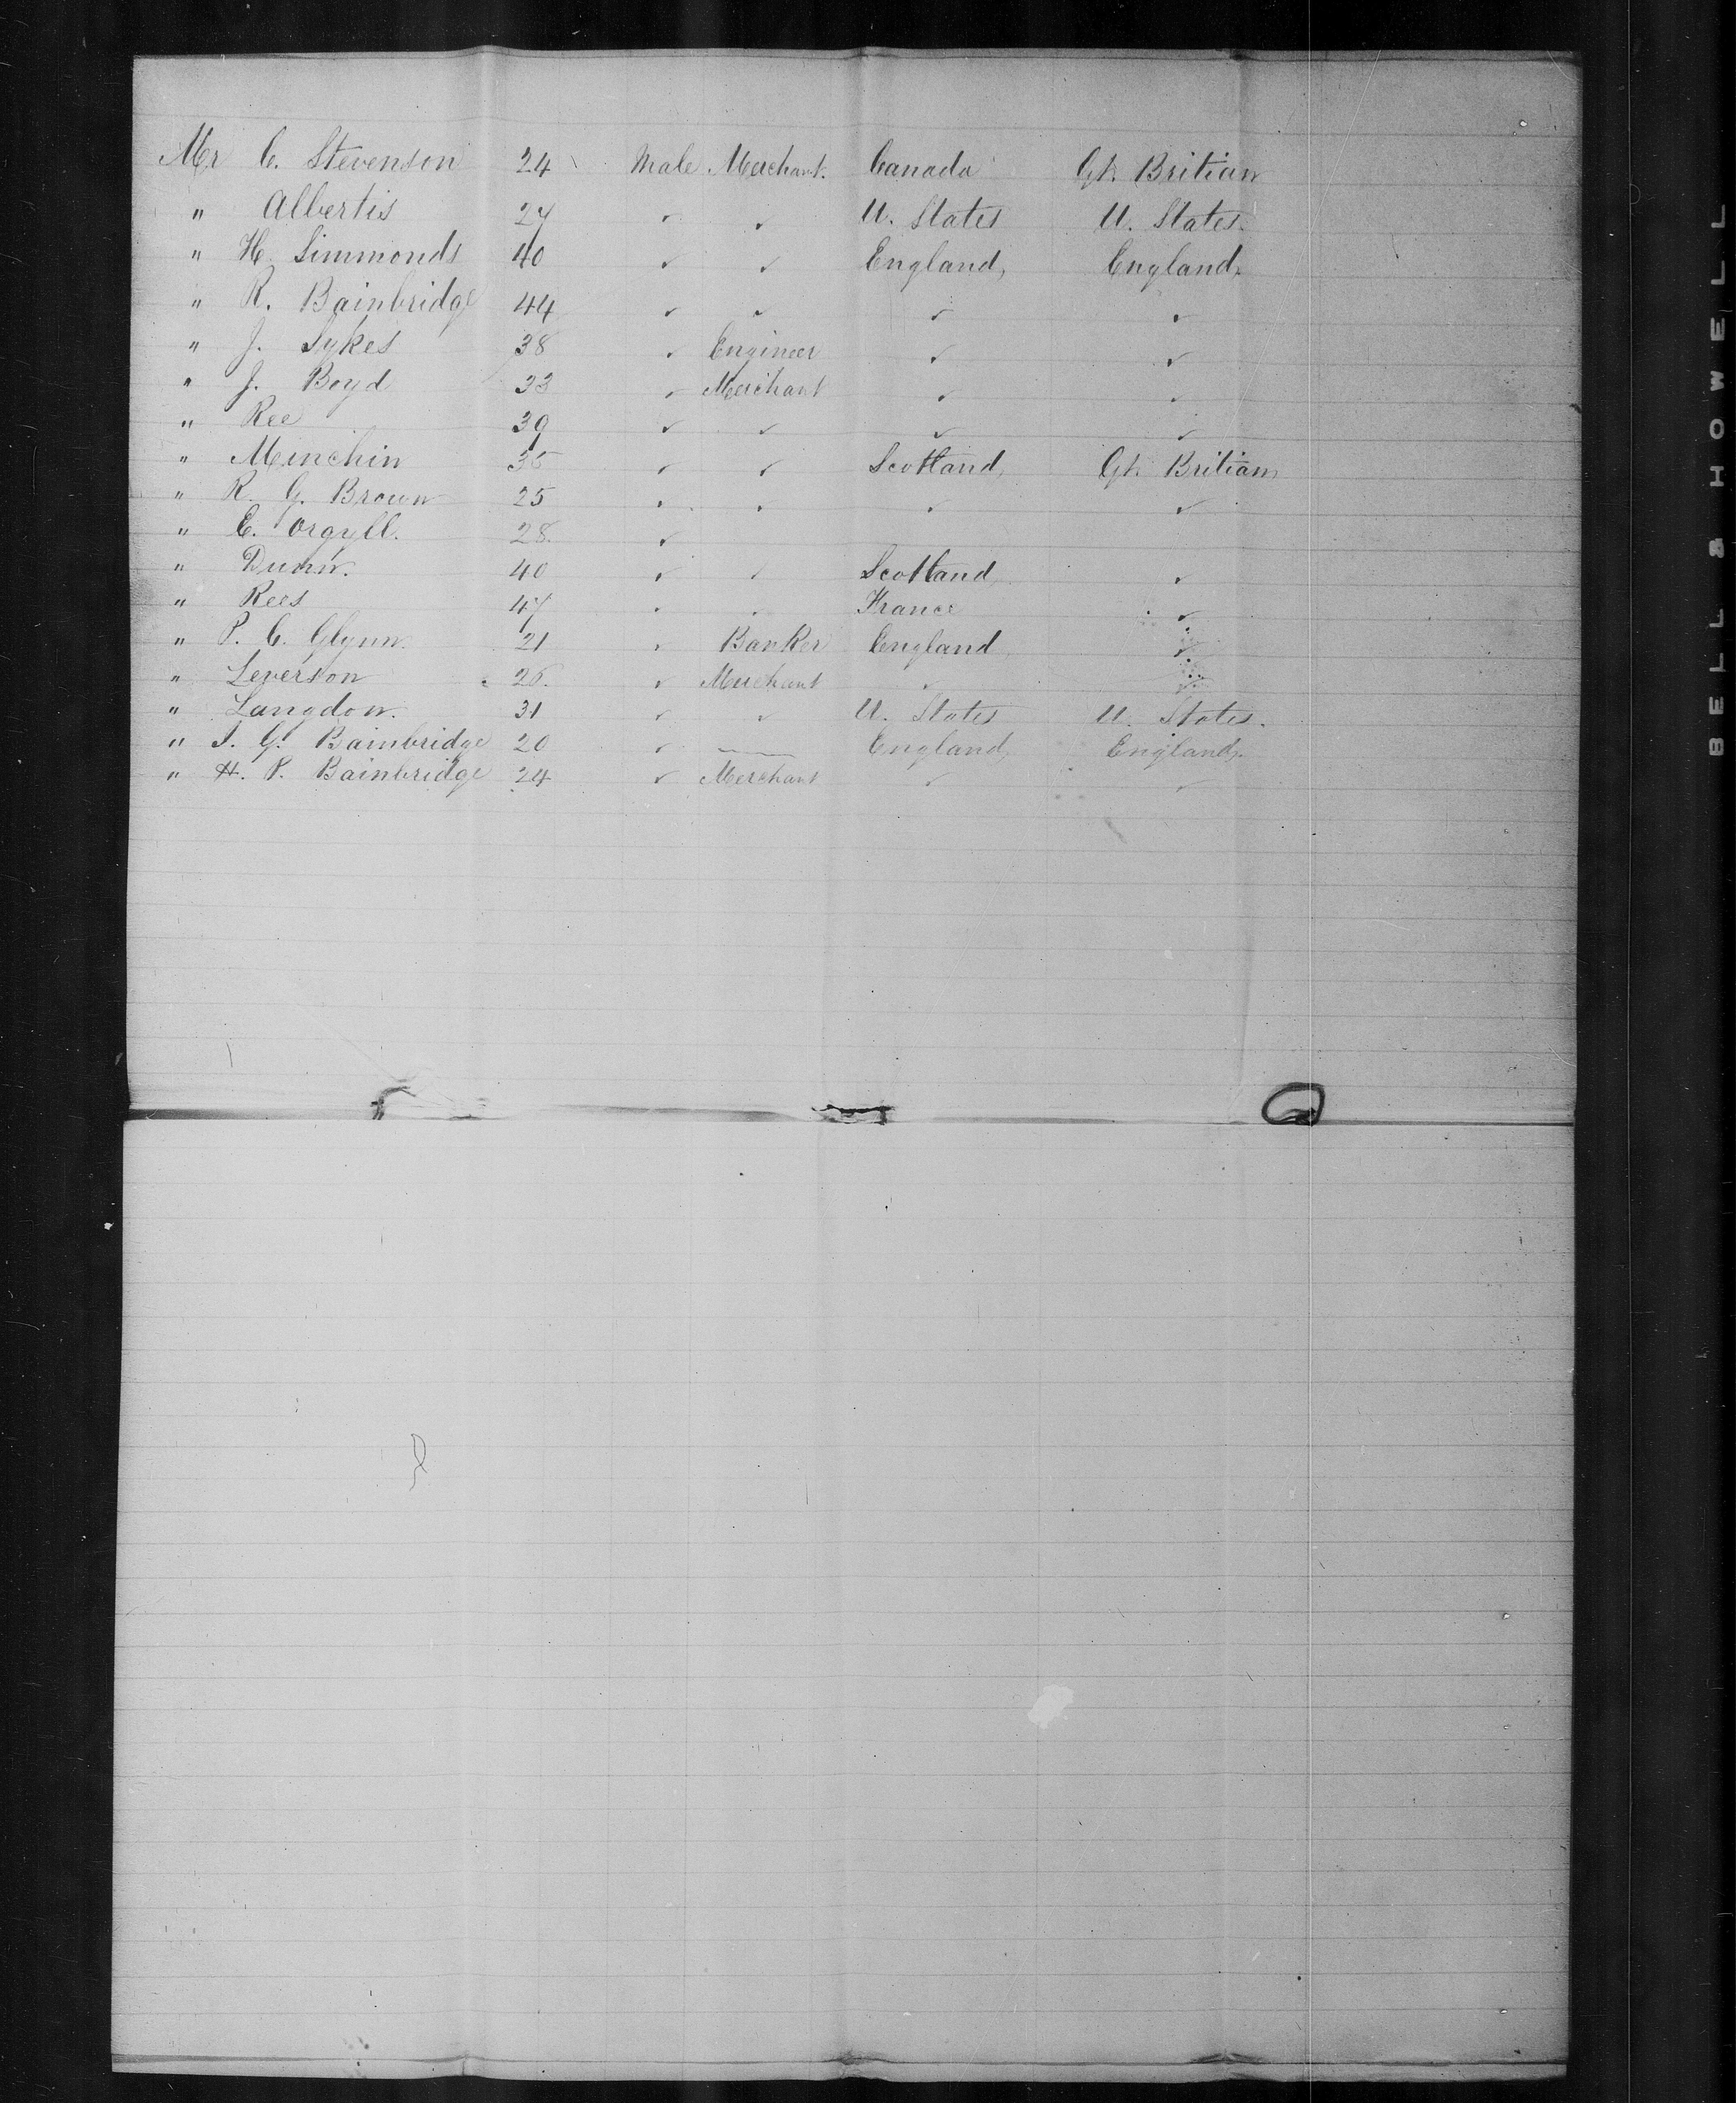 Mr C. Stevenson 24 Male Merchant. Canada Gt. Britian
" Albertis 27 ✓ ✓ U. States U. States.
" H. Simmonds 40 ✓ ✓ England, England,
" R. Bainbridge 44 ✓ ✓ ✓ ✓
" J. Sykes 38 ✓ Engineer ✓ ✓
" J. Boyd 33 ✓ Merchant ✓ ✓
" Ree 39 ✓ ✓ ✓ ✓
" Minchin 35 ✓ ✓ Scotland, Gt. Britian,
" R. G. Brown 25 ✓ ✓ ✓ ✓
" C. Orgyll. 28. ✓
" Dunn. 40 ✓ ✓ Scotland, ✓
" Rees 47 ✓ ✓ France ✓
" P. C. Glynn. 21 ✓ Banker England ✓
" Leverson 26. ✓ Merchant ✓ ✓
" Langdon. 31 ✓ ✓ U. States U. States.
" S. G. Bainbridge 20 ✓ — England, England,
" H. P. Bainbridge 24 ✓ Merchant ✓ ✓
BELL & HOWELL